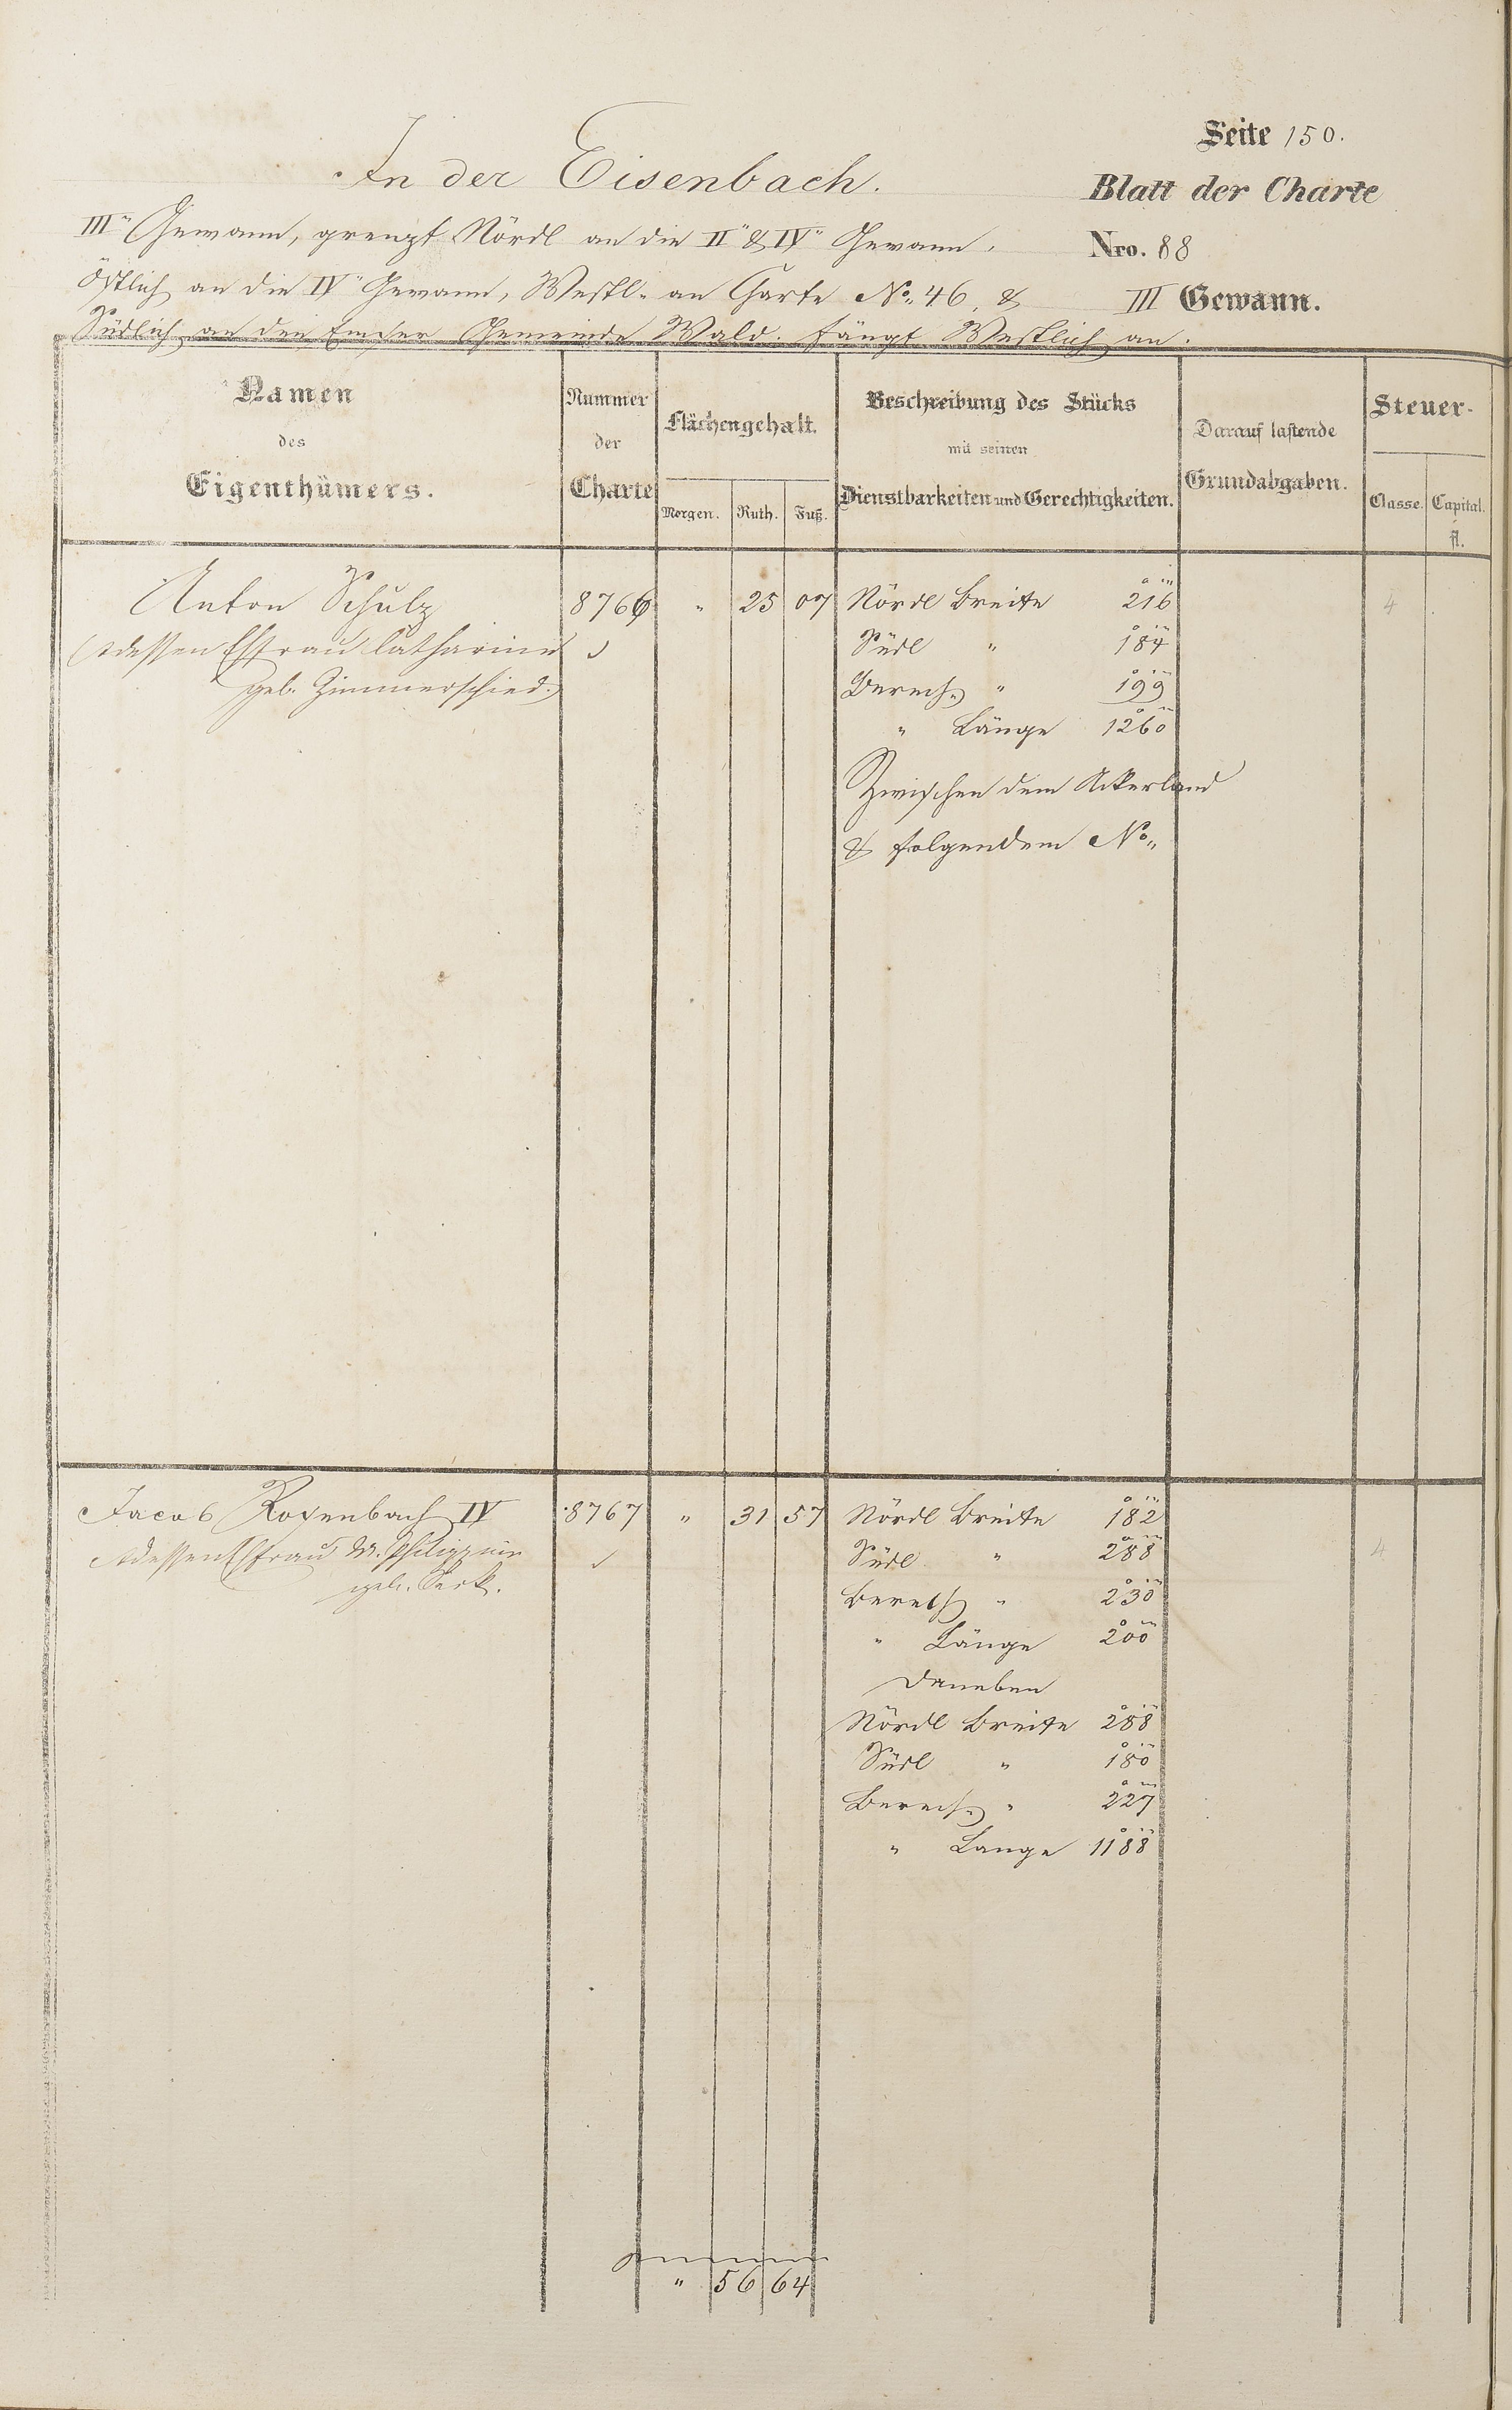 Seite 150.
In der Eisenbach.
Blatt der Charte
III" Gewann, grenzt Nördl an die II" & IV" Gewann,
Nro. 88
Östlich an die IV" Gewann, Westl. an Charte No. 46, &
III Gewann.
Südlich an den Emser Gemeinde Wald. fängt Westlich an.
Namen des Eigenthümers.
Nummer der Charte
Flächengehalt.
Morgen. Ruth. Fuß.
Beschreibung des Stücks
mit seinen
Dienstbarkeiten und Gerechtigkeiten.
Darauf lastende
Grundabgaben.
Steuer-
Classe. Capital.
fl.
Anton Schulz 8766 " 25 07 Nördl Breite 216 4
(dessen Ehfrau Catharine Südl " 184
geb. Zimmerschied.) Berech. " 199
" Länge 1260
Zwischen dem Ackerland
& folgendem No.
Jacob Rosenbach IV 8767 " 31 57 Nördl Breite 182
dessen Ehfrau M. Philippine Südl " 288 4
geb. Berech " 230
" Länge 200
Daneben
Nördl Breite 288
Südl " 180
Berech. " 227
" Länge 1188
" 56 64